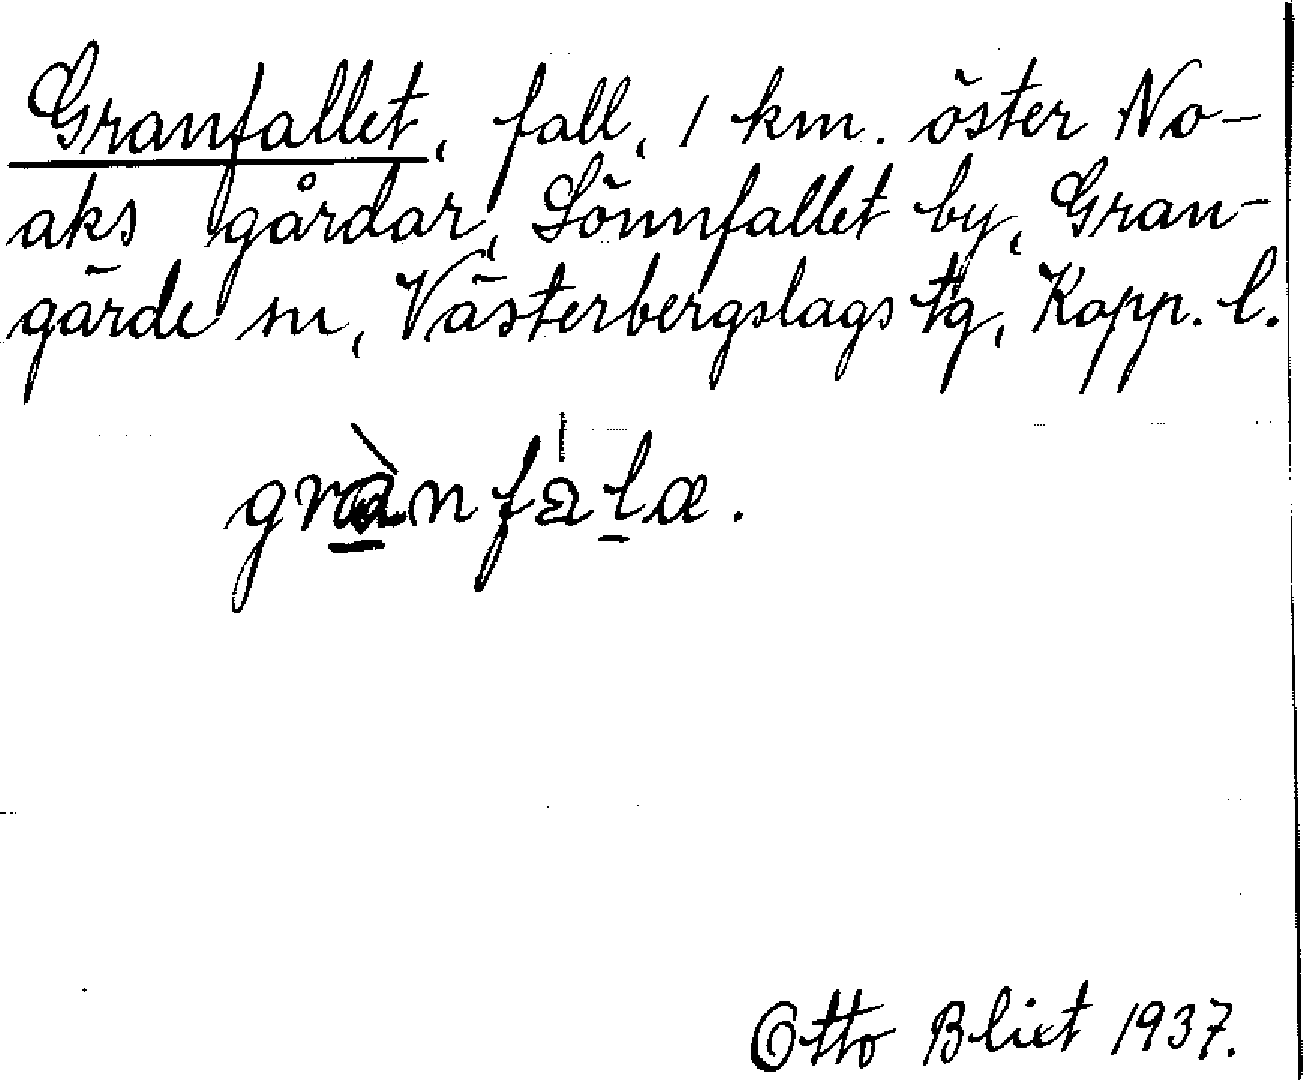 Granfallet, fall, 1 km. öster No-
aks gårdar, Sönnfallet by, Gran-
gärde sn, Västerbergslags tg, Kopp. l.
grànfala.
Otto Blixt 1937.